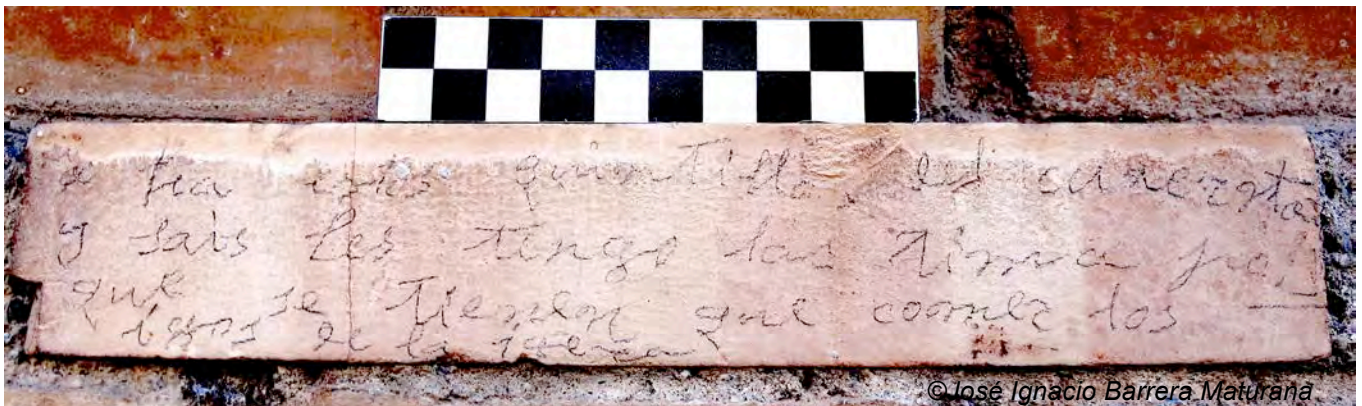 a estos quintillo del cuarenta
y sais les tengo las tima por
que se tienen que comer los
igos de la
©José Ignacio Barrera Maturana